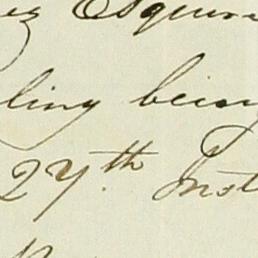 Esquire
ling being
27th Inst